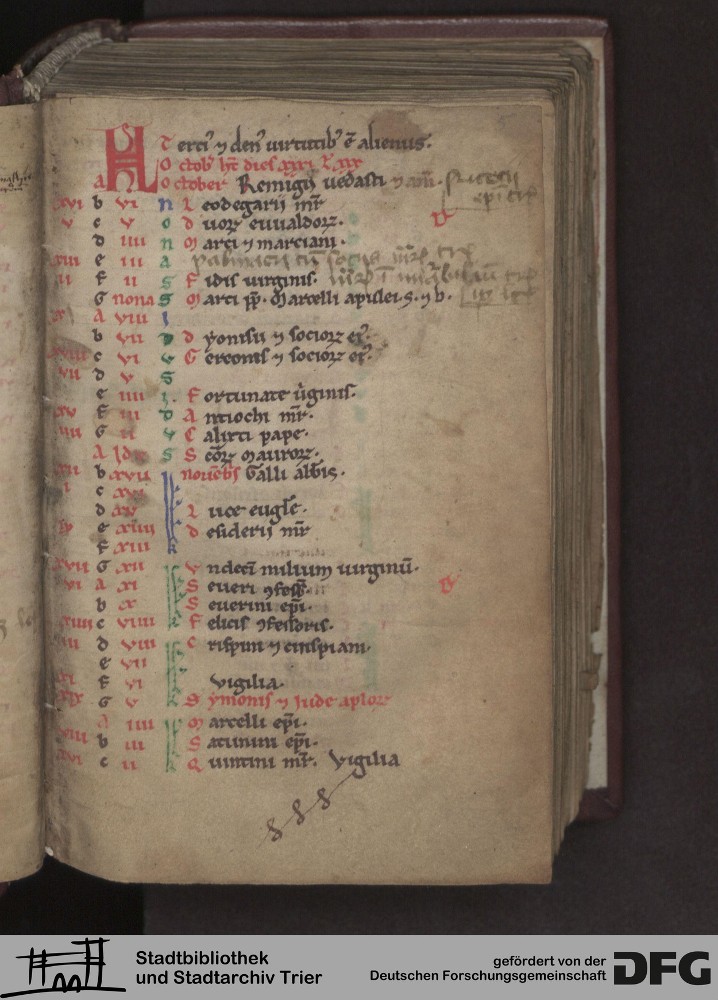 T erciꝰ ⁊ denꝰ uirtutibꝰ ē alienus.
KL Octob̄ ht̄ dies xxxi L̄ xxx
A October Remigii uedasti ⁊ am̄.
xvi b vi N L eodegarii mr̄
v c v O D uorꝝ euualdorꝝ.
d iiii N M arci ⁊ marciani.
xiii e iii A
ii f ii S F idis uirginis.
G nonas S M arci pp̄. Marcelli apulei. S. ⁊ b.
x A viii I
b vii D D yonisii ⁊ sociorꝝ eiꝰ.
xviii c vi V G ereonis ⁊ sociorꝝ eiꝰ.
vii d v S
e iiii I F ortunate ūginis.
xv f iii D A ntiochi mr̄.
iiii G ii V C alixti pape.
A Idꝰ S S cōꝝ Maurorꝝ.
xii b xvii Nouēbs̄ Galli abb̄is.
i c xvi
d xv L uce eugl̄e.
ix e xiiii D esiderii mr̄
f xiii k
xvii G xii V ndeci milium uirginū.
vi A xi S eueri ꝯfess̄.
b x S euerini ep̄i.
xiiii c viiii k F elicis ꝯfessoris.
iii d viii C rispini ⁊ crispiani.
e vii
xi f vi Vigilia
xix G v k S ymonis ⁊ Iude aplorꝝ
A iiii M arcelli ep̄i.
viii b iii S aturnini ep̄i.
xvi c ii k Q uintini mr̄. Vigilia
Stadtbibliothek
und Stadtarchiv Trier
gefördert von der
Deutschen Forschungsgemeinschaft
DFG